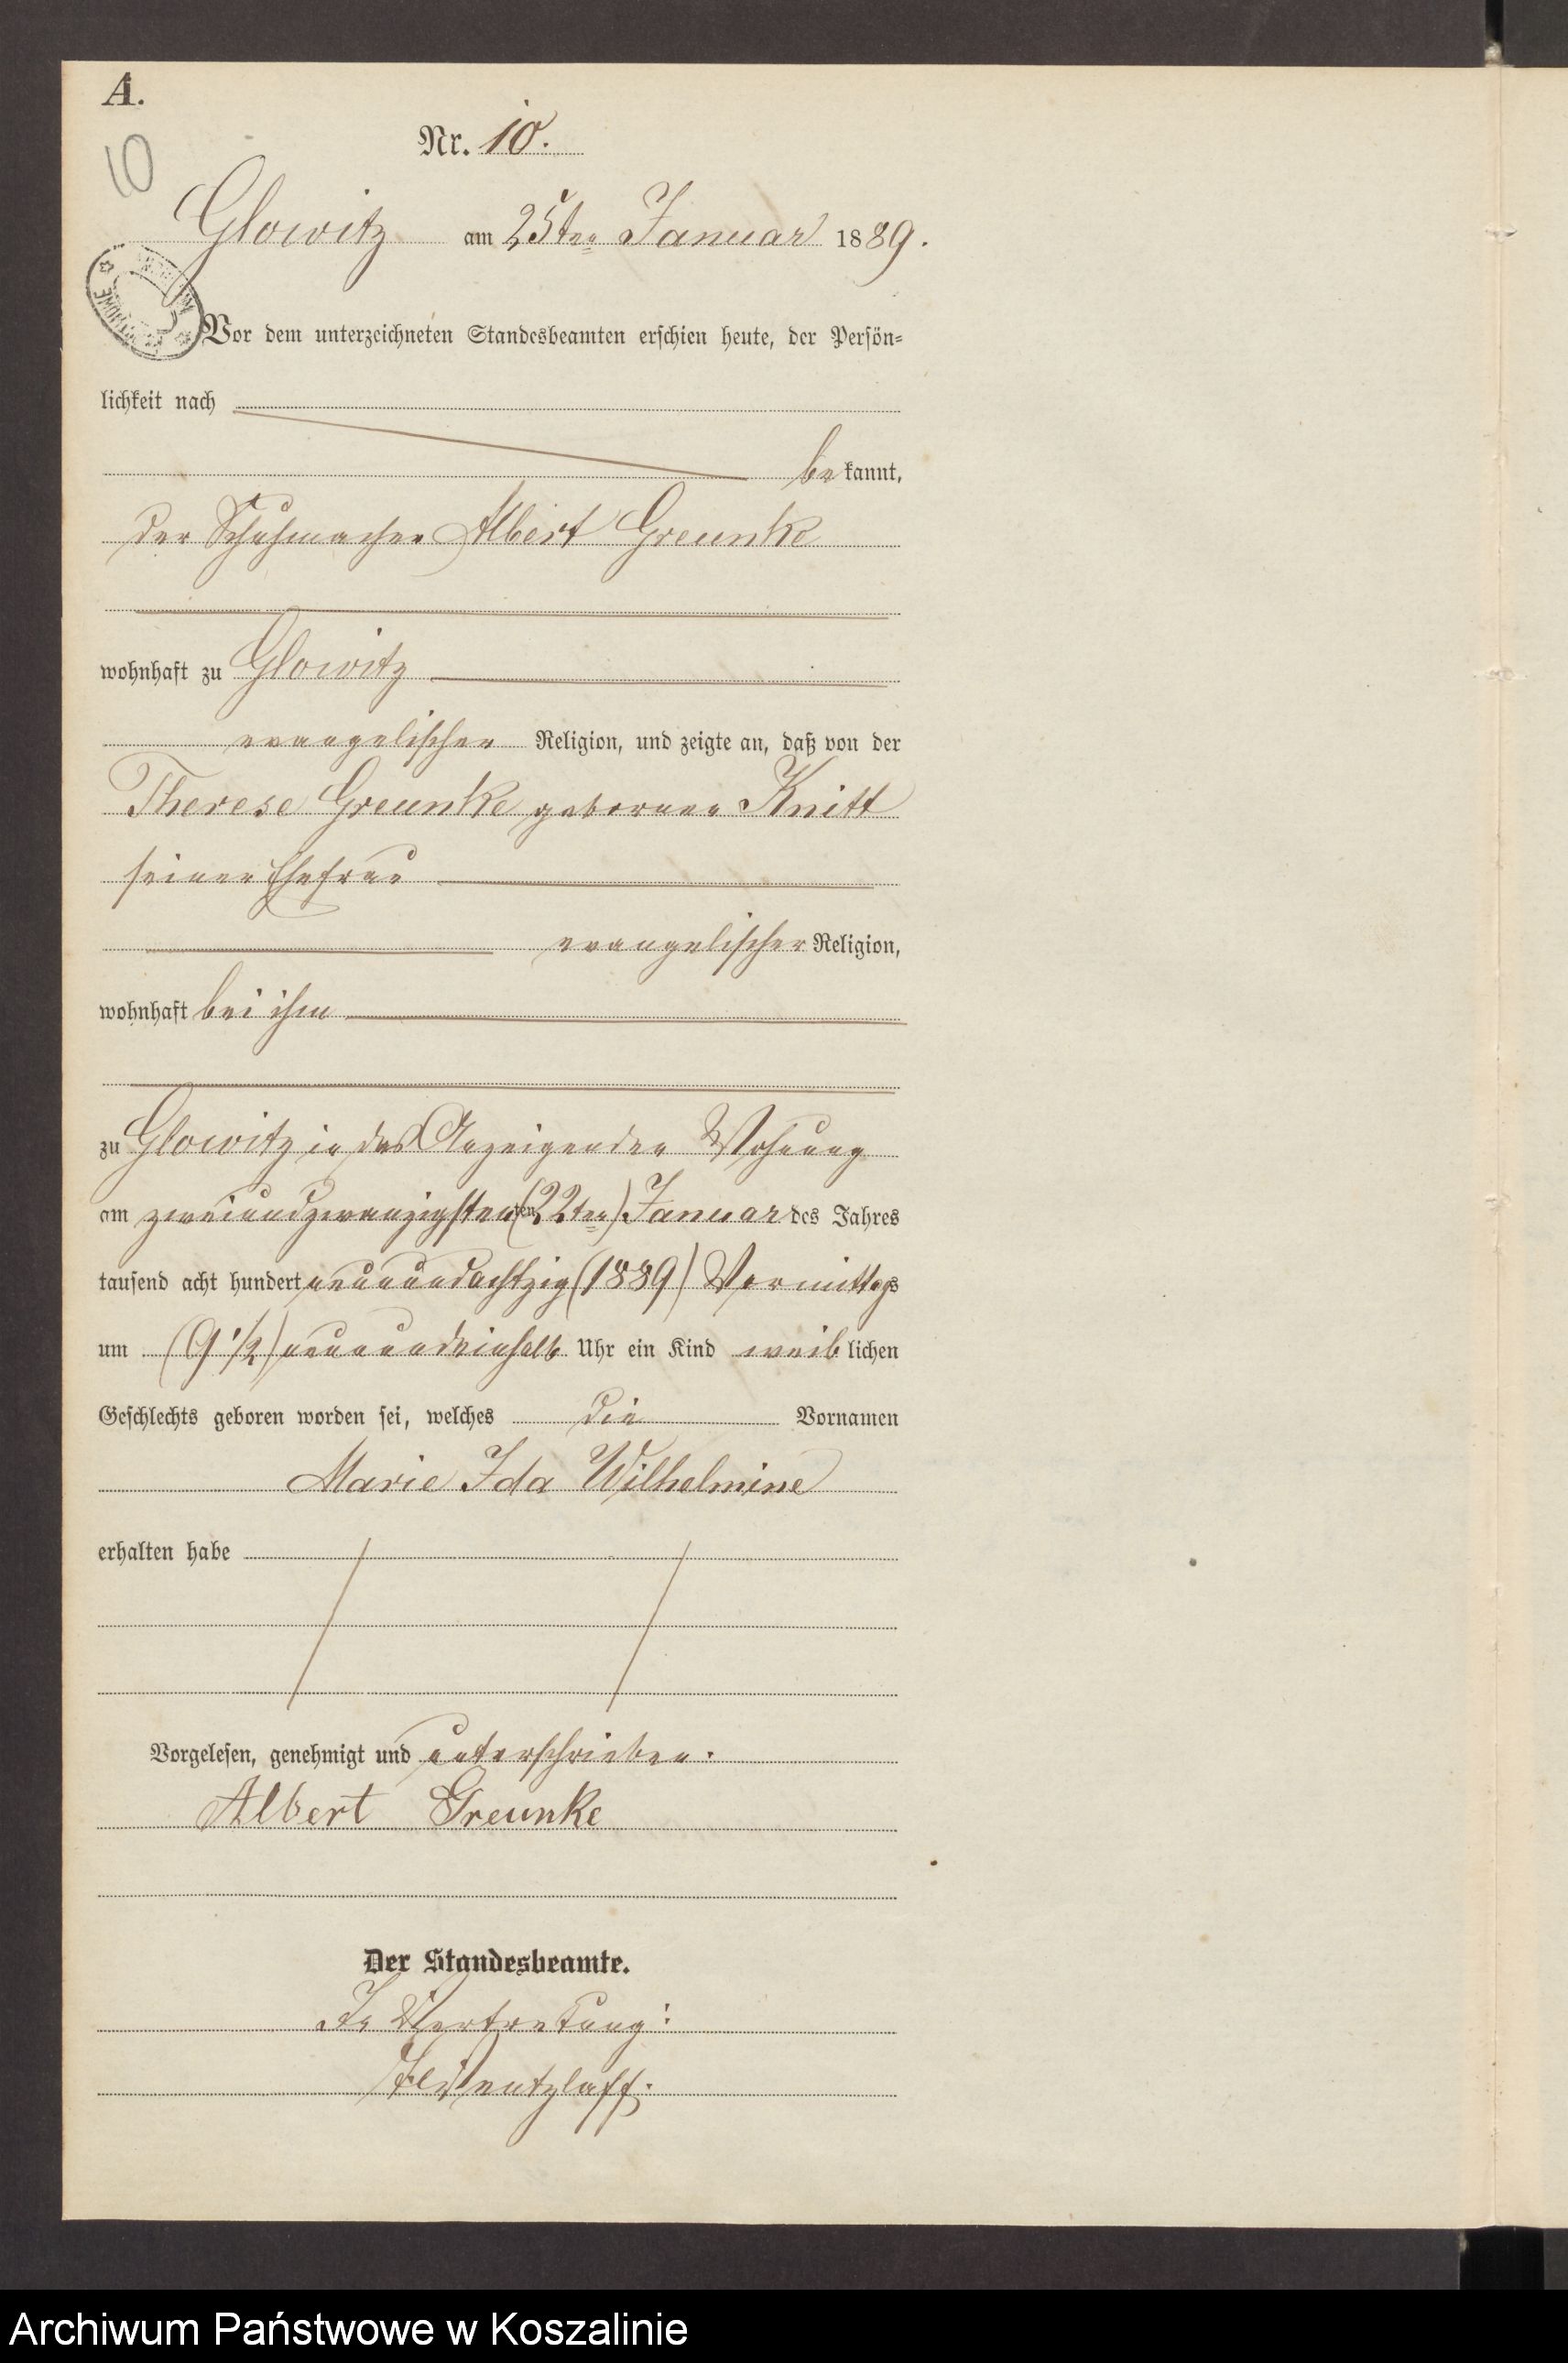 A.
10
Nr. 10.
Glowitz am 25ten Januar 1889.
Vor dem unterzeichneten Standesbeamten erschien heute, der Persön-
lichkeit nach
bekannt,
der Schuhmacher Albert Greunke
wohnhaft zu Glowitz
evangelischer Religion, und zeigte an, daß von der
Therese Greunke geborenen Knitt
seiner Ehefrau
evangelischer Religion,
wohnhaft bei ihm
zu Glowitz in des Anzeigenden Wohnung
am zweiundzwanzigsten ten (22ten) Januar des Jahres
tausend acht hundert neunundachtzig (1889) Vormittags
um (9 1/2) neunundeinhalb Uhr ein Kind weiblichen
Geschlechts geboren worden sei, welches die Vornamen
Marie Ida Wilhelmine
erhalten habe
Vorgelesen, genehmigt und unterschrieben.
Albert Greunke
Der Standesbeamte.
In Vertretung:
Archiwum Państwowe w Koszalinie